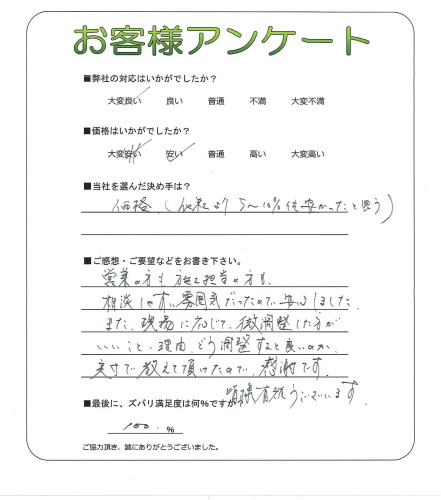 お客様アンケート
■弊社の対応はいかがでしたか?
大変良い 良い 普通 不満 大変不満
■価格はいかがでしたか?
大変安い 安い 普通 高い 大変高い
■当社を選んだ決め手は?
価格(他社より5〜10%位安かったと思う)
■ご感想・ご要望などをお書き下さい。
営業の方も施工担当の方も、
相談しやすい雰囲気だったので安心しました
また、現場に応じて、微調整した方が
いいこと、理由、どう調整すると良いのか、
実寸で教えて頂けたので、感謝です。
皆様有難うございます。
■最後に、ズバリ満足度は何%ですか?
100 %
ご協力頂き、誠にありがとうございました。